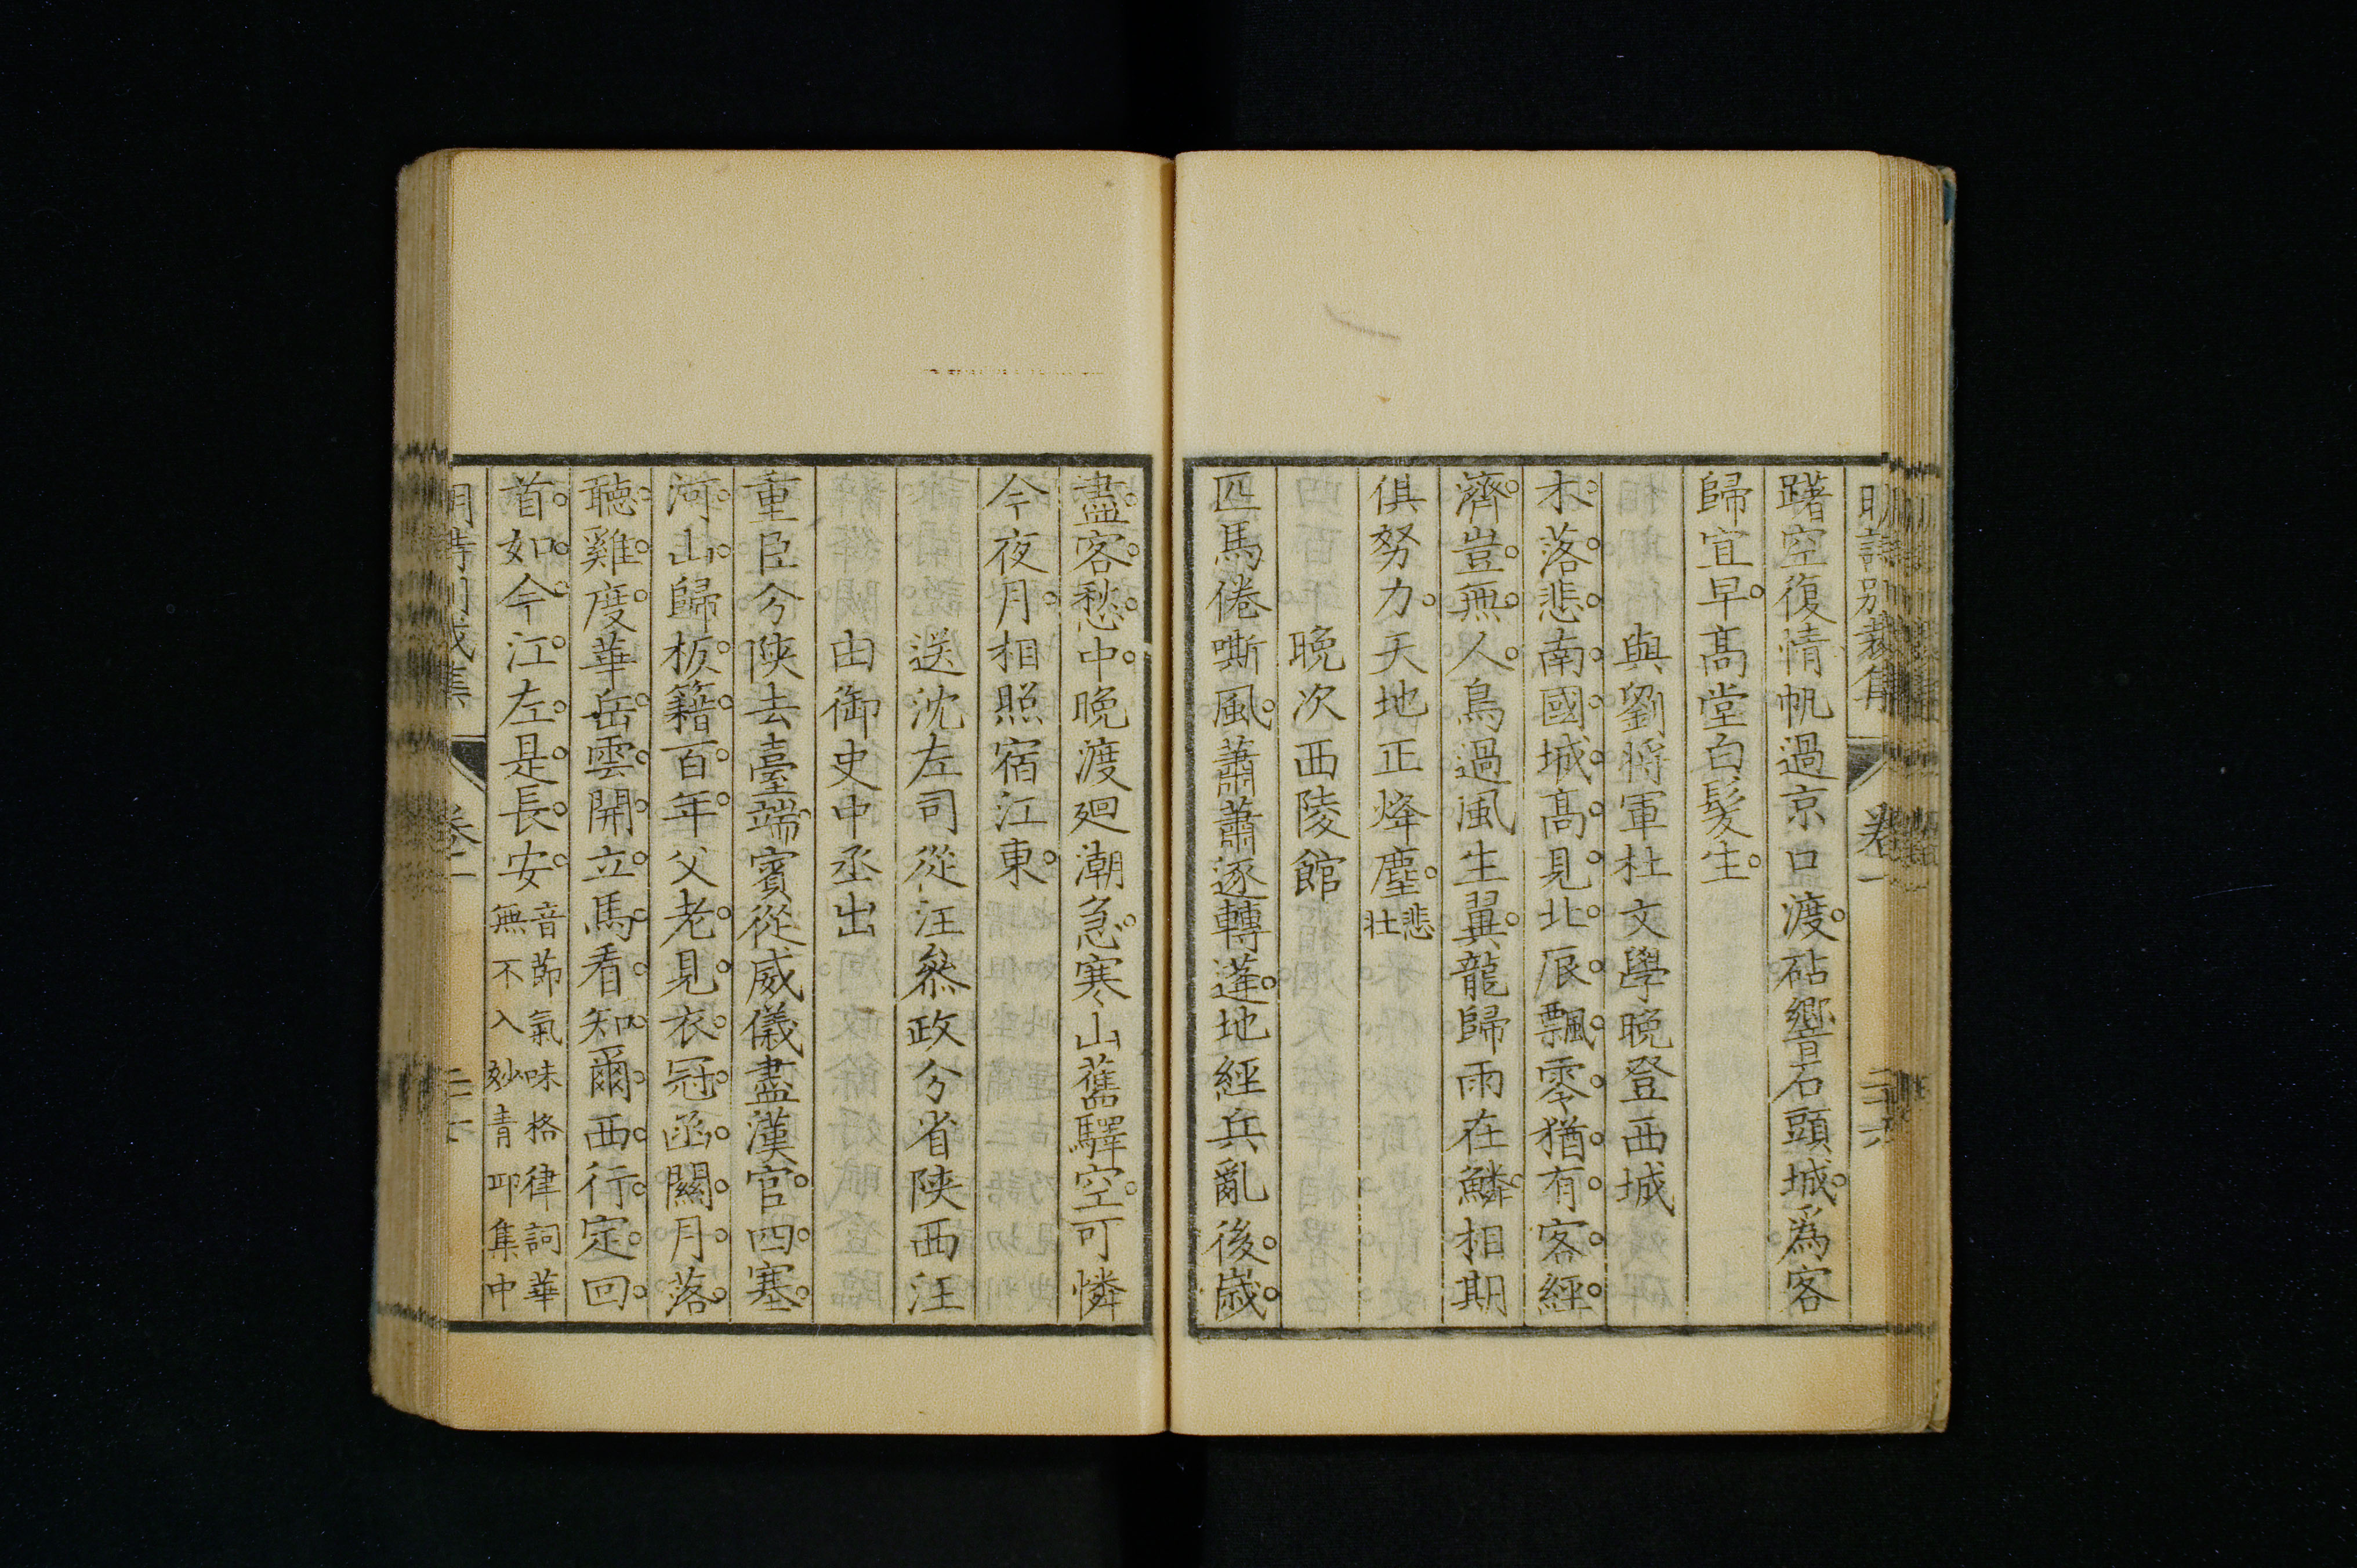 明詩別裁集 卷一 二六
躇空復情帆過京口渡砧響石頭城爲客
歸宜早高堂白髮生
與劉將軍杜文學晚登西城
木落悲南國城高見北辰飄零猶有客經
濟豈無人鳥過風生翼龍歸雨在鱗相期
俱努力天地正烽塵悲壯
晚次西陵館
匹馬倦嘶風蕭蕭逐轉蓬地經兵亂後歲
盡客愁中晚渡廻潮急寒山舊驛空可憐
今夜月相照宿江東
送沈左司從汪叅政分省陝西汪
由御史中丞出
重臣分陝去臺端賓從威儀盡漢官四塞
河山歸板籍百年父老見衣冠函關月落
聽雞度華岳雲開立馬看知爾西行定回
首如今江左是長安音節氣味格律詞華
無不入妙青邱集中
明詩別裁集 卷一